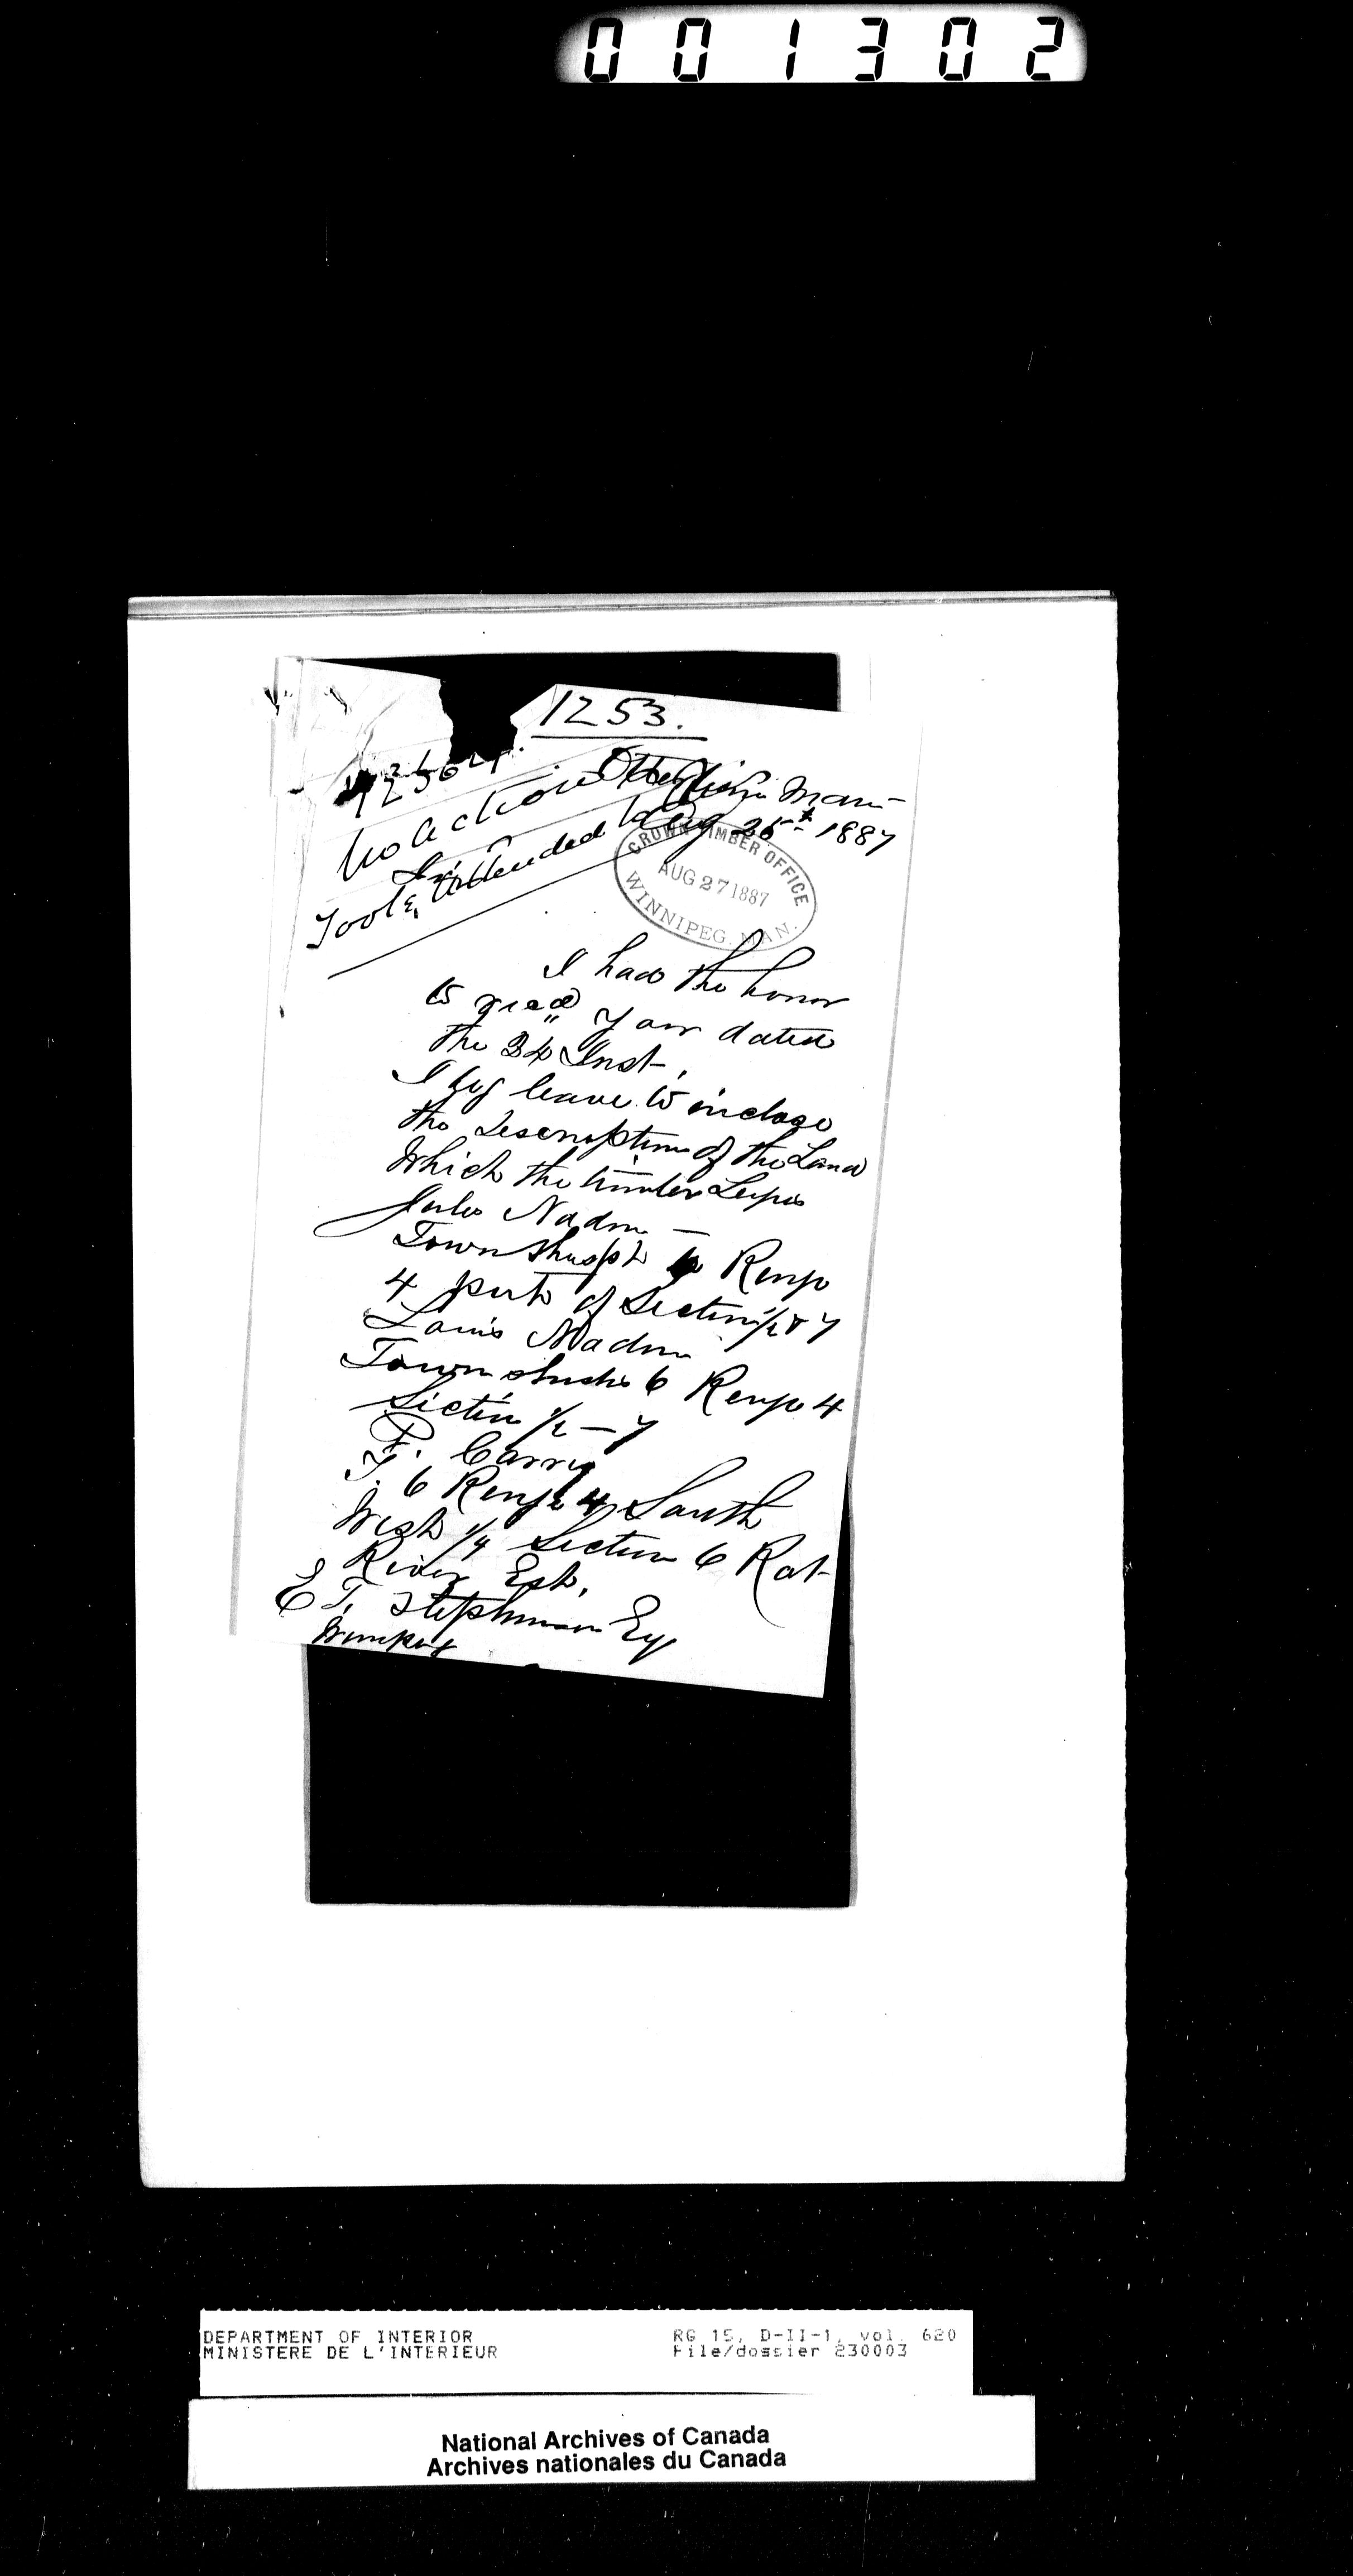 001302
1253.
No action
attended to
Otterburne Man
Aug 25th 1887
CROWN TIMBER OFFICE
AUG 27 1887
WINNIPEG. MAN.
I have the honor
to your dated
the 24 Inst.
I beg leave to inclose
the Description of the Land
Which the timber
Nadon
Township 6 Renge
4 part of Section 1/2 7
Louis Nadon
Township 6 Renge 4
Section 1/2 - 7
P. Carry
T. 6 Renge 4 South
West 1/4 Section 6 Rat
River Est.
E T. Stephenson Esq
Winnipeg
DEPARTMENT OF INTERIOR
MINISTERE DE L'INTERIEUR
RG 15, D-II-1, vol. 620
File/dossier 230003
National Archives of Canada
Archives nationales du Canada